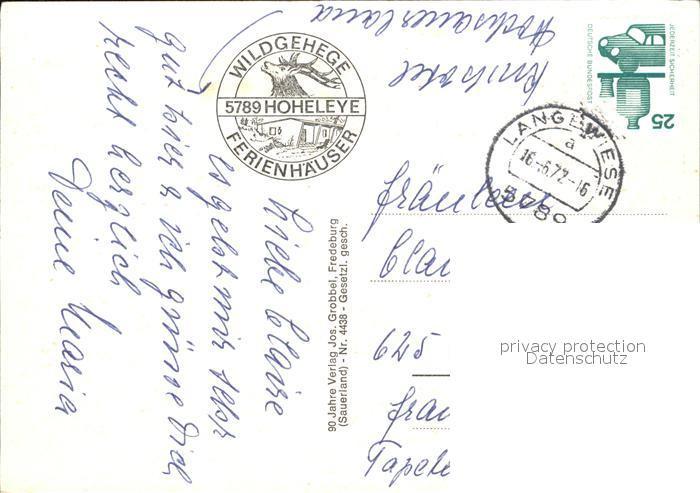 Hochsauerland
WILDGEHEGE
5789 HOHELEYE
FERIENHÄUSER
JEDERZEIT SICHERHEIT
DEUTSCHE BUNDESPOST
25
LANGEWIESE
a
16.-6.72.-16
5789
Liebe Claire
es geht mir sehr
gut hier u. ich grüsse Dich
recht herzlich
Deine Maria
90 Jahre Verlag Jos. Grobbel, Fredeburg
(Sauerland) - Nr. 4438 - Gesetzl. gesch.
Fräulein
Clai
625
Tapete
privacy protection
Datenschutz